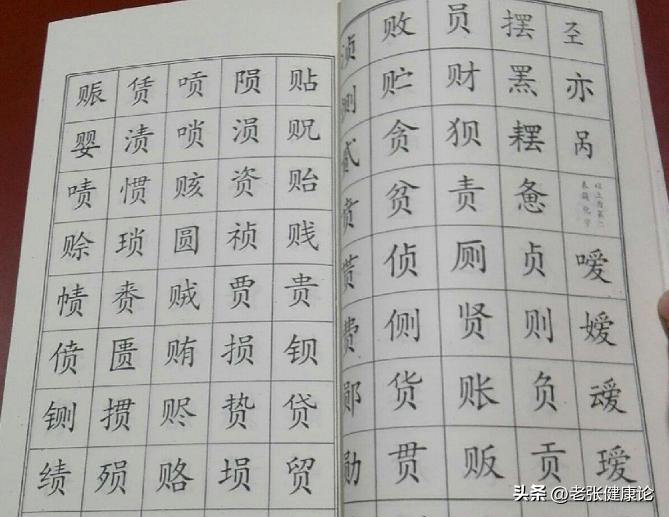 𢀖亦呙
以上为第二
表简化字
嗳嫒叆瑷
摆罴䎱惫贞则负贡
员财狈责厕贤账贩
败贮贪贫侦侧货贯
测贰贲贳费郧勋
贴贶贻贱贵钡贷贸
陨涢资祯贾损贽埙
唝唢赅圆贼贿赆赂
赁渍惯琐赉匮掼殒
赈婴啧赊帻偾铡绩
头条 @老张健康论